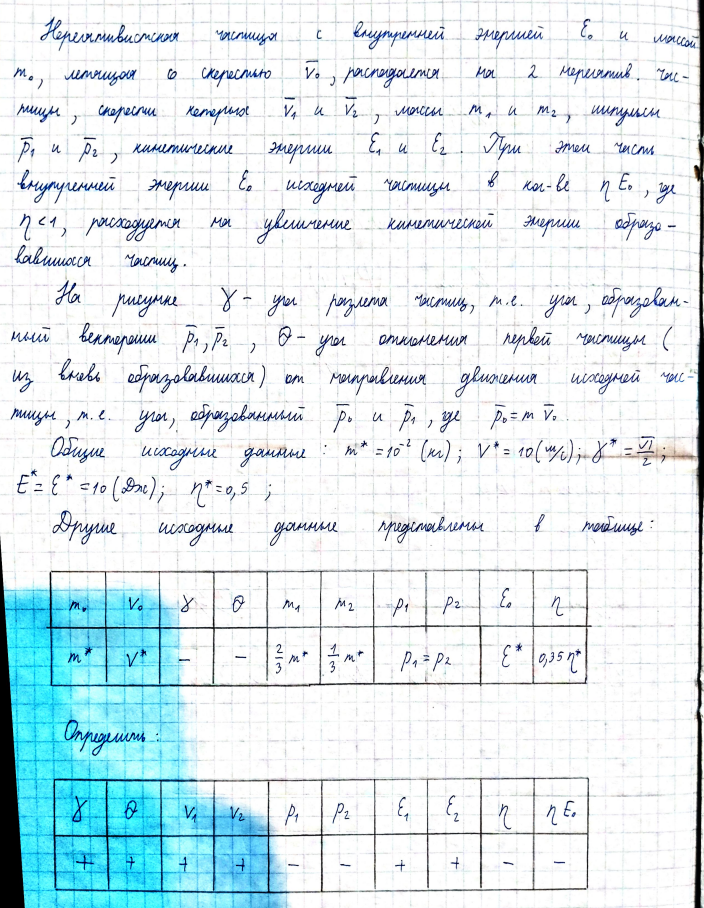 Нерелятивистская частица с внутренней энергией E₀ и массой
m₀, летящая со скоростью v̅₀, распадается на 2 нерелятив. час-
тицы, скорости которых v̅₁ и v̅₂, массы m₁ и m₂, импульсы
p̅₁ и p̅₂, кинетические энергии Ɛ₁ и Ɛ₂. При этом часть
внутренней энергии E₀ исходной частицы в кол-ве ηE₀, где
η<1, расходуется на увеличение кинетической энергии образо-
вавшихся частиц.
На рисунке γ - угол разлета частиц, т.е. угол, образован-
ный векторами p̅₁, p̅₂, θ - угол отклонения первой частицы (
из вновь образовавшихся) от направления движения исходной час-
тицы, т.е. угол, образованный p̅₀ и p̅₁, где p̅₀=m v̅₀.
Общие исходные данные: m*=10⁻² (кг); V*=10 (м/с); γ*=π/2;
E*=Ɛ*=10 (Дж); η*=0,5;
Другие исходные данные представлены в таблице:
m₀ v₀ γ θ m₁ m₂ p₁ p₂ Ɛ₀ η
m* V* - - 2/3 m* 1/3 m* p₁=p₂ Ɛ* 0,35η*
Определить:
γ θ v₁ v₂ p₁ p₂ Ɛ₁ Ɛ₂ η ηE₀
+ + + + - - + + - -